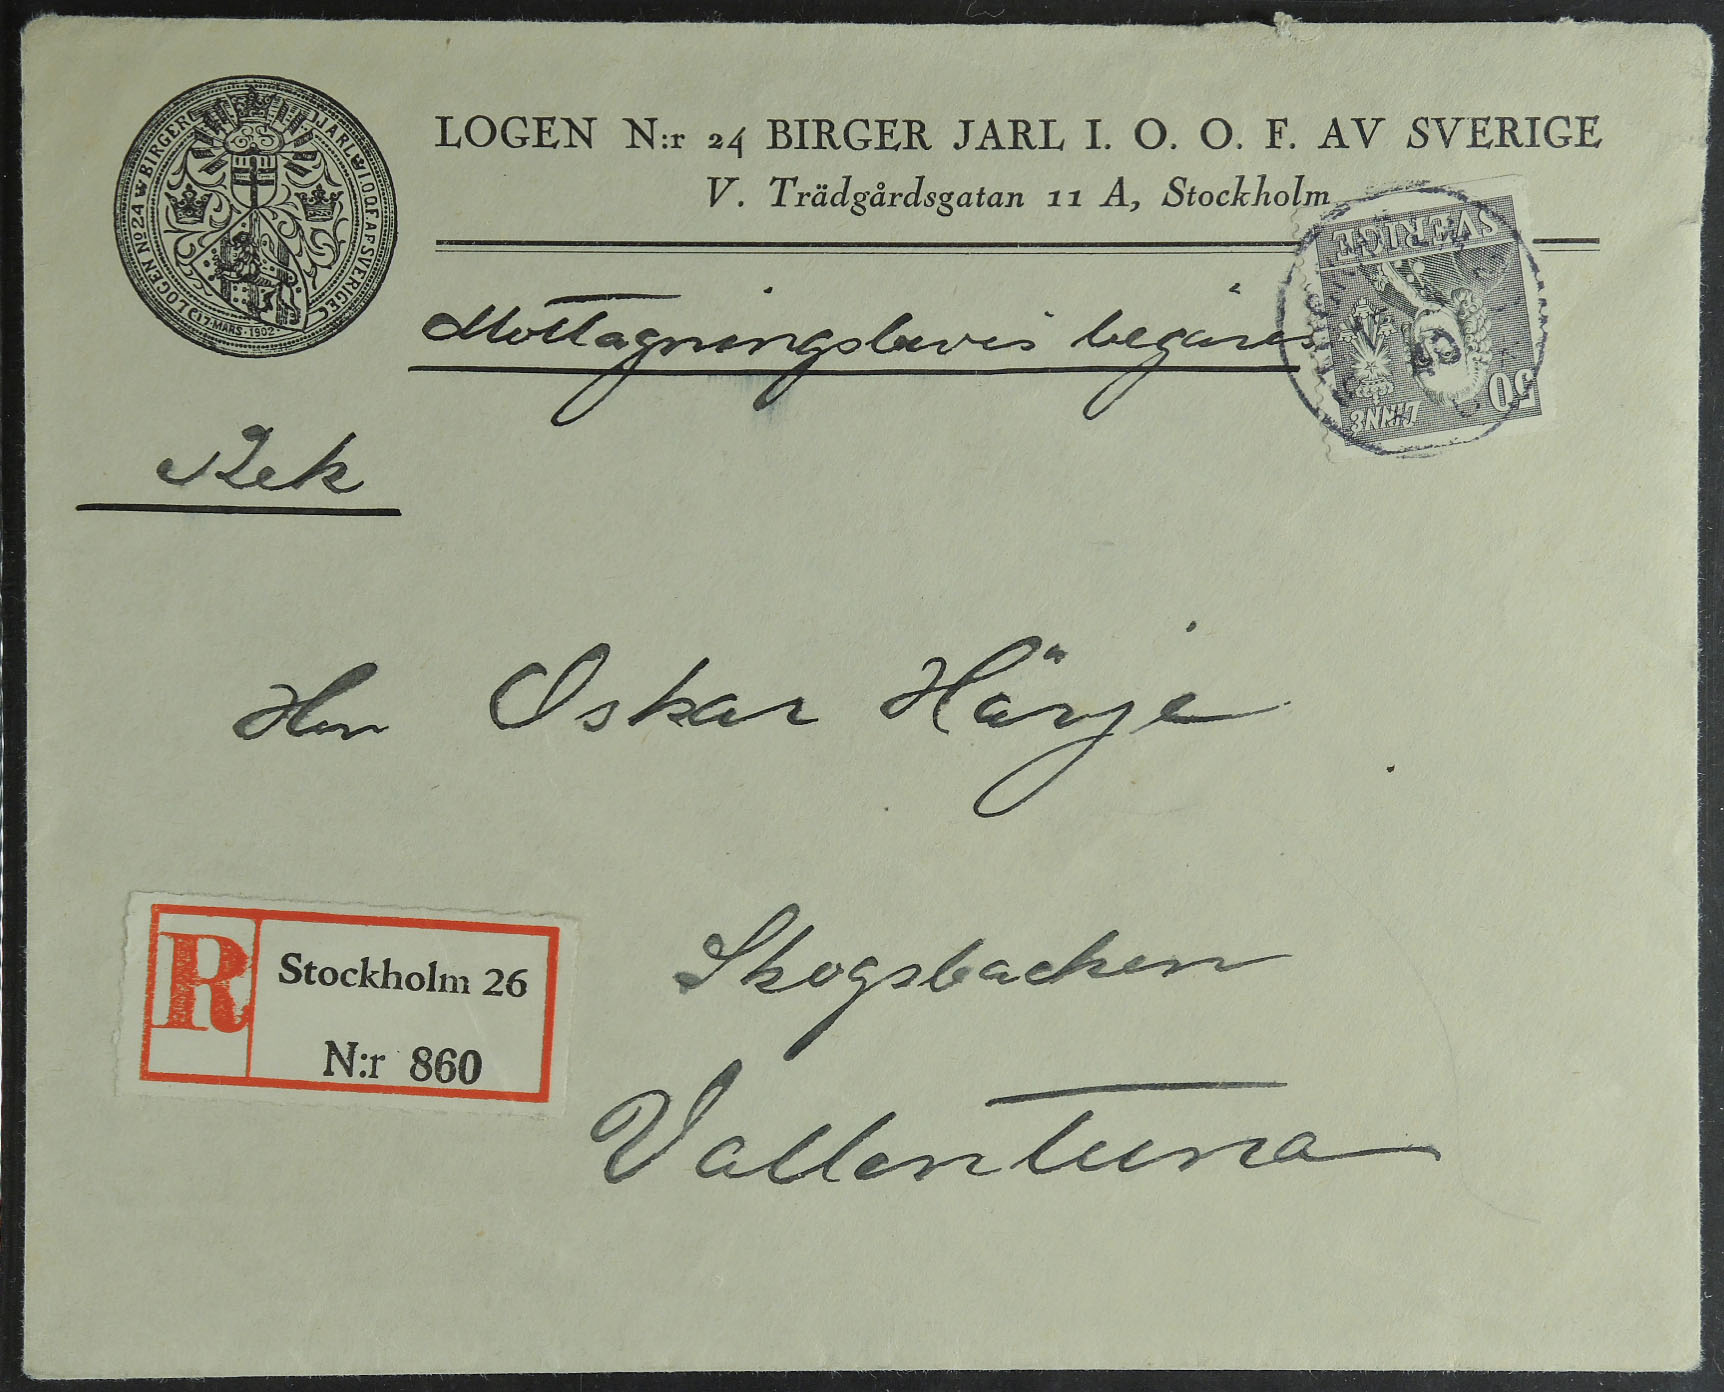 LOGEN N:r 24 BIRGER JARL I. O. O. F. AV SVERIGE
V. Trädgårdsgatan 11 A, Stockholm
LOGEN No 24 BIRGER JARL I.O.O.F. AF SVERIGE
17 MARS 1902
SVERIGE
LINNÉ
50
Mottagningsbevis begäres
Rek
Herr Oskar Härje
R
Stockholm 26
N:r 860
Skogsbacken
Vallentuna